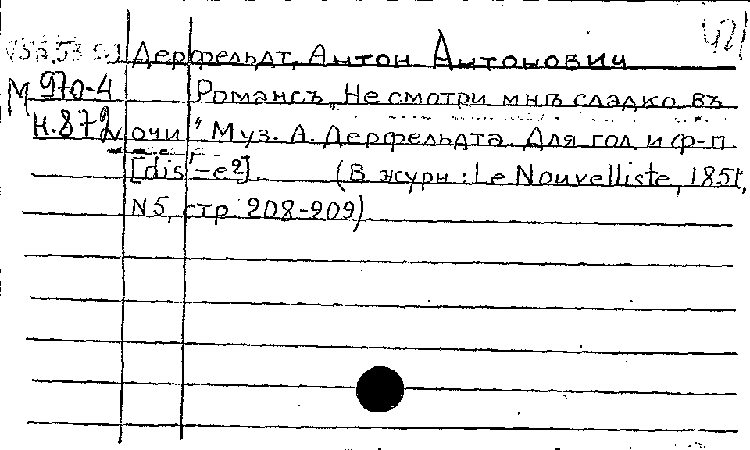 421
Дерфельдт, Антон Антонович
М 970-4
Н.872
Романсъ „Не смотри мнѣ сладко въ
очи" Муз. А. Дерфельдта. Для гол. и ф-п.
[dis'-e2]. (В журн: Le Nouvelliste, 1851,
N5, стр 208-209)